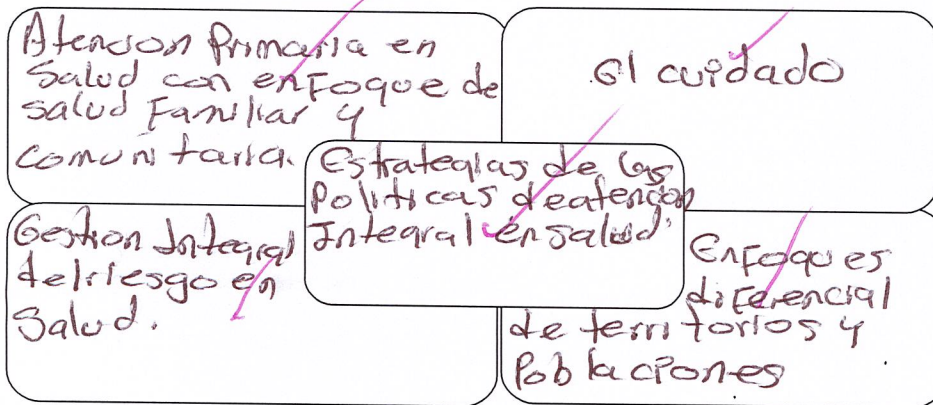 Atencion Primaria en
Salud con enfoque de
salud Familiar y
comunitaria.
El cuidado
Estrategias de las
Politicas de atencion
Integral en salud.
Gestion Integral
del riesgo en
Salud.
Enfoques
diferencial
de territorios y
Poblaciones